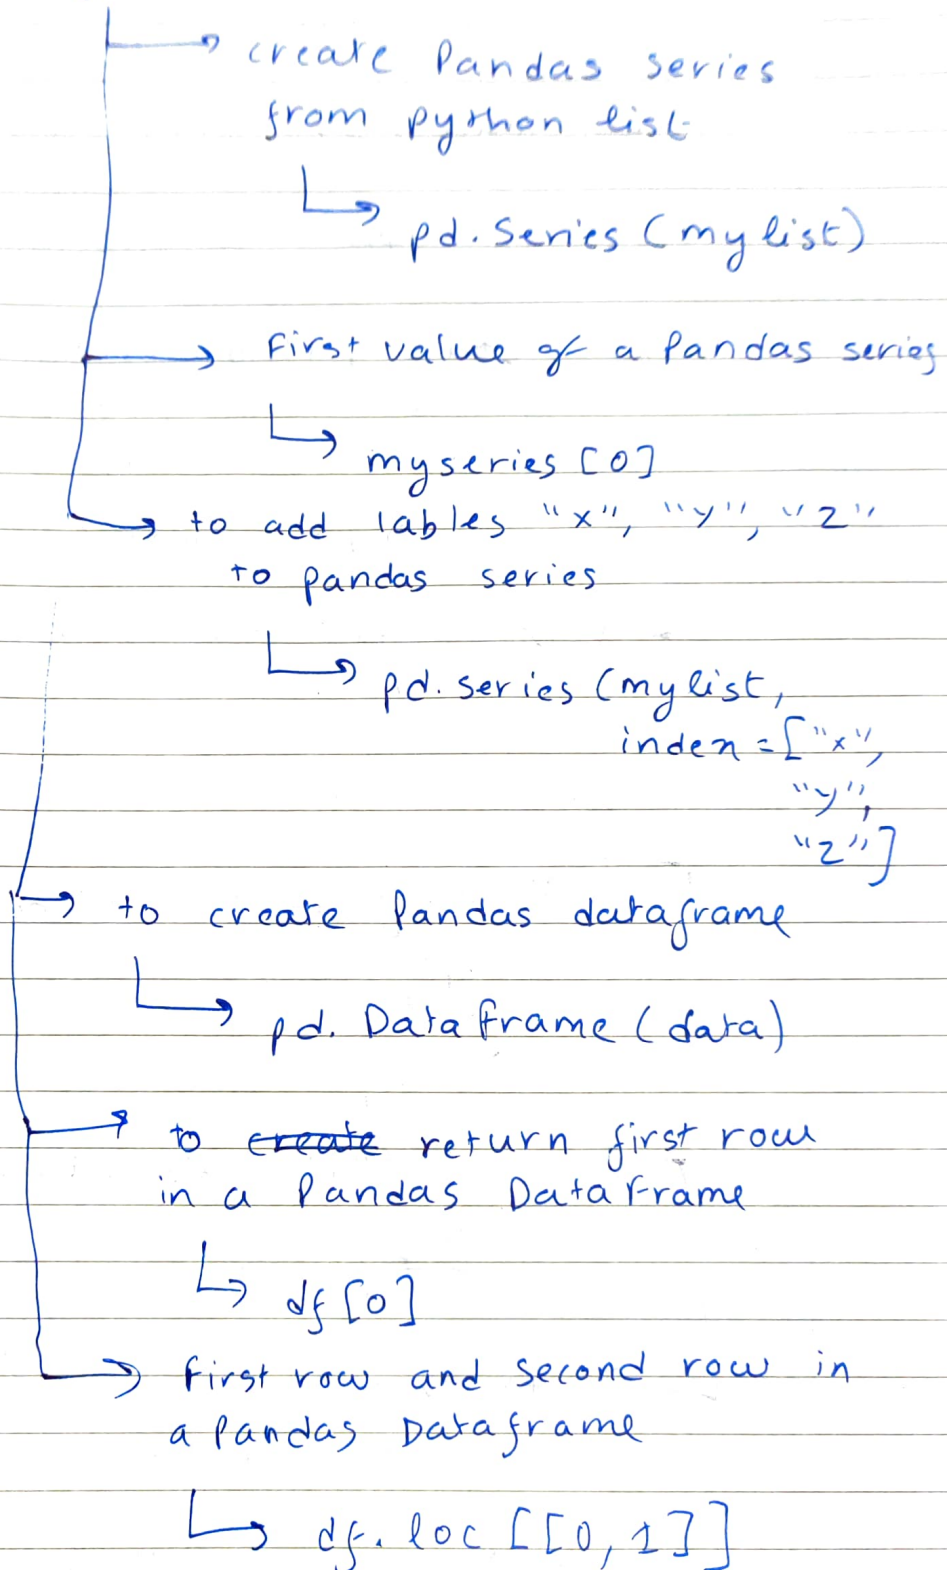 create Pandas series
from python list
pd. Series (mylist)
First value of a Pandas series
myseries [0]
to add lables "x", "y", "z"
to pandas series
pd. series (mylist,
index = ["x",
"y",
"z"]
to create Pandas dataframe
pd. DataFrame (data)
to create return first row
in a Pandas DataFrame
df [0]
first row and second row in
a Pandas Dataframe
df. loc [[0, 1]]